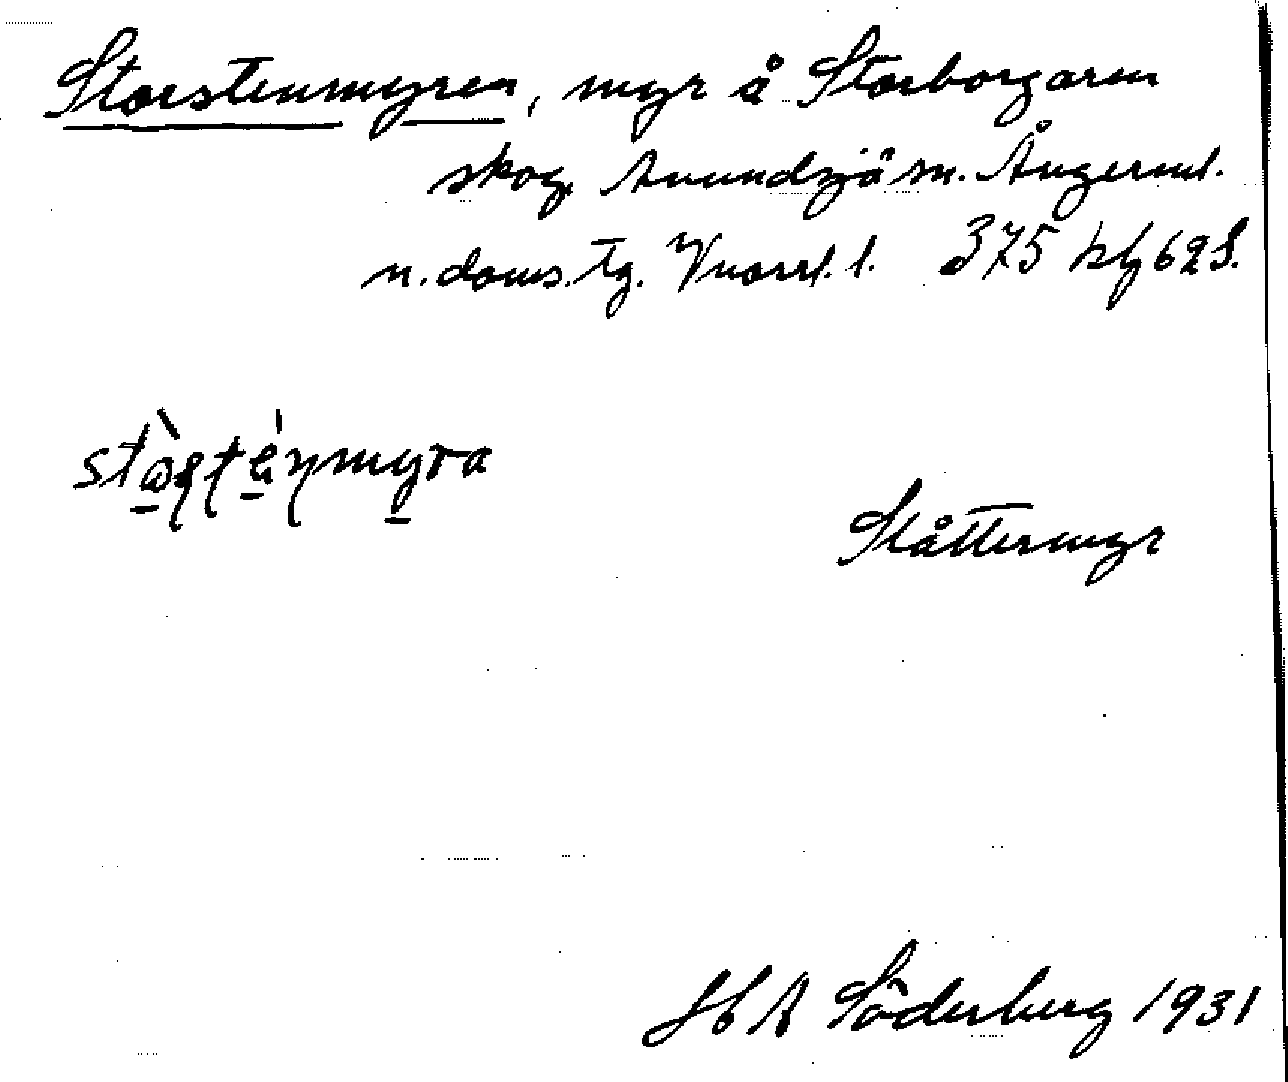 Storstenmyren, myr å Storborgarns
skog, Anundsjö sn. Ångerml.
n. doms. tg. Vnorrl. l. 375 kbf 62 S.
Slåttermyr
H A Söderberg 1931